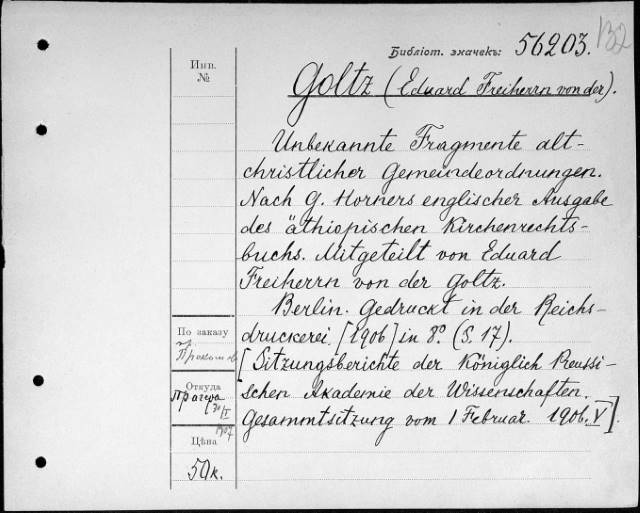 Библіот. значекъ: 56203.
132
Инв.
№
Goltz (Eduard Freiherrn von der).
Unbekannte Fragmente alt-
christlicher Gemeindeordnungen.
Nach G. Horners englischer Ausgabe
des äthiopischen Kirchenrechts-
buchs. Mitgeteilt von Eduard
Freiherrn von der Goltz.
Berlin. Gedruckt in der Reichs-
druckerei [1906] in 8° (S. 17).
[Sitzungsberichte der Königlich Preussi-
schen Akademie der Wissenschaften.
Gesammtsitzung vom 1 Februar. 1906. V].
По заказу
Откуда
Прага
1907
Цѣна
50 к.